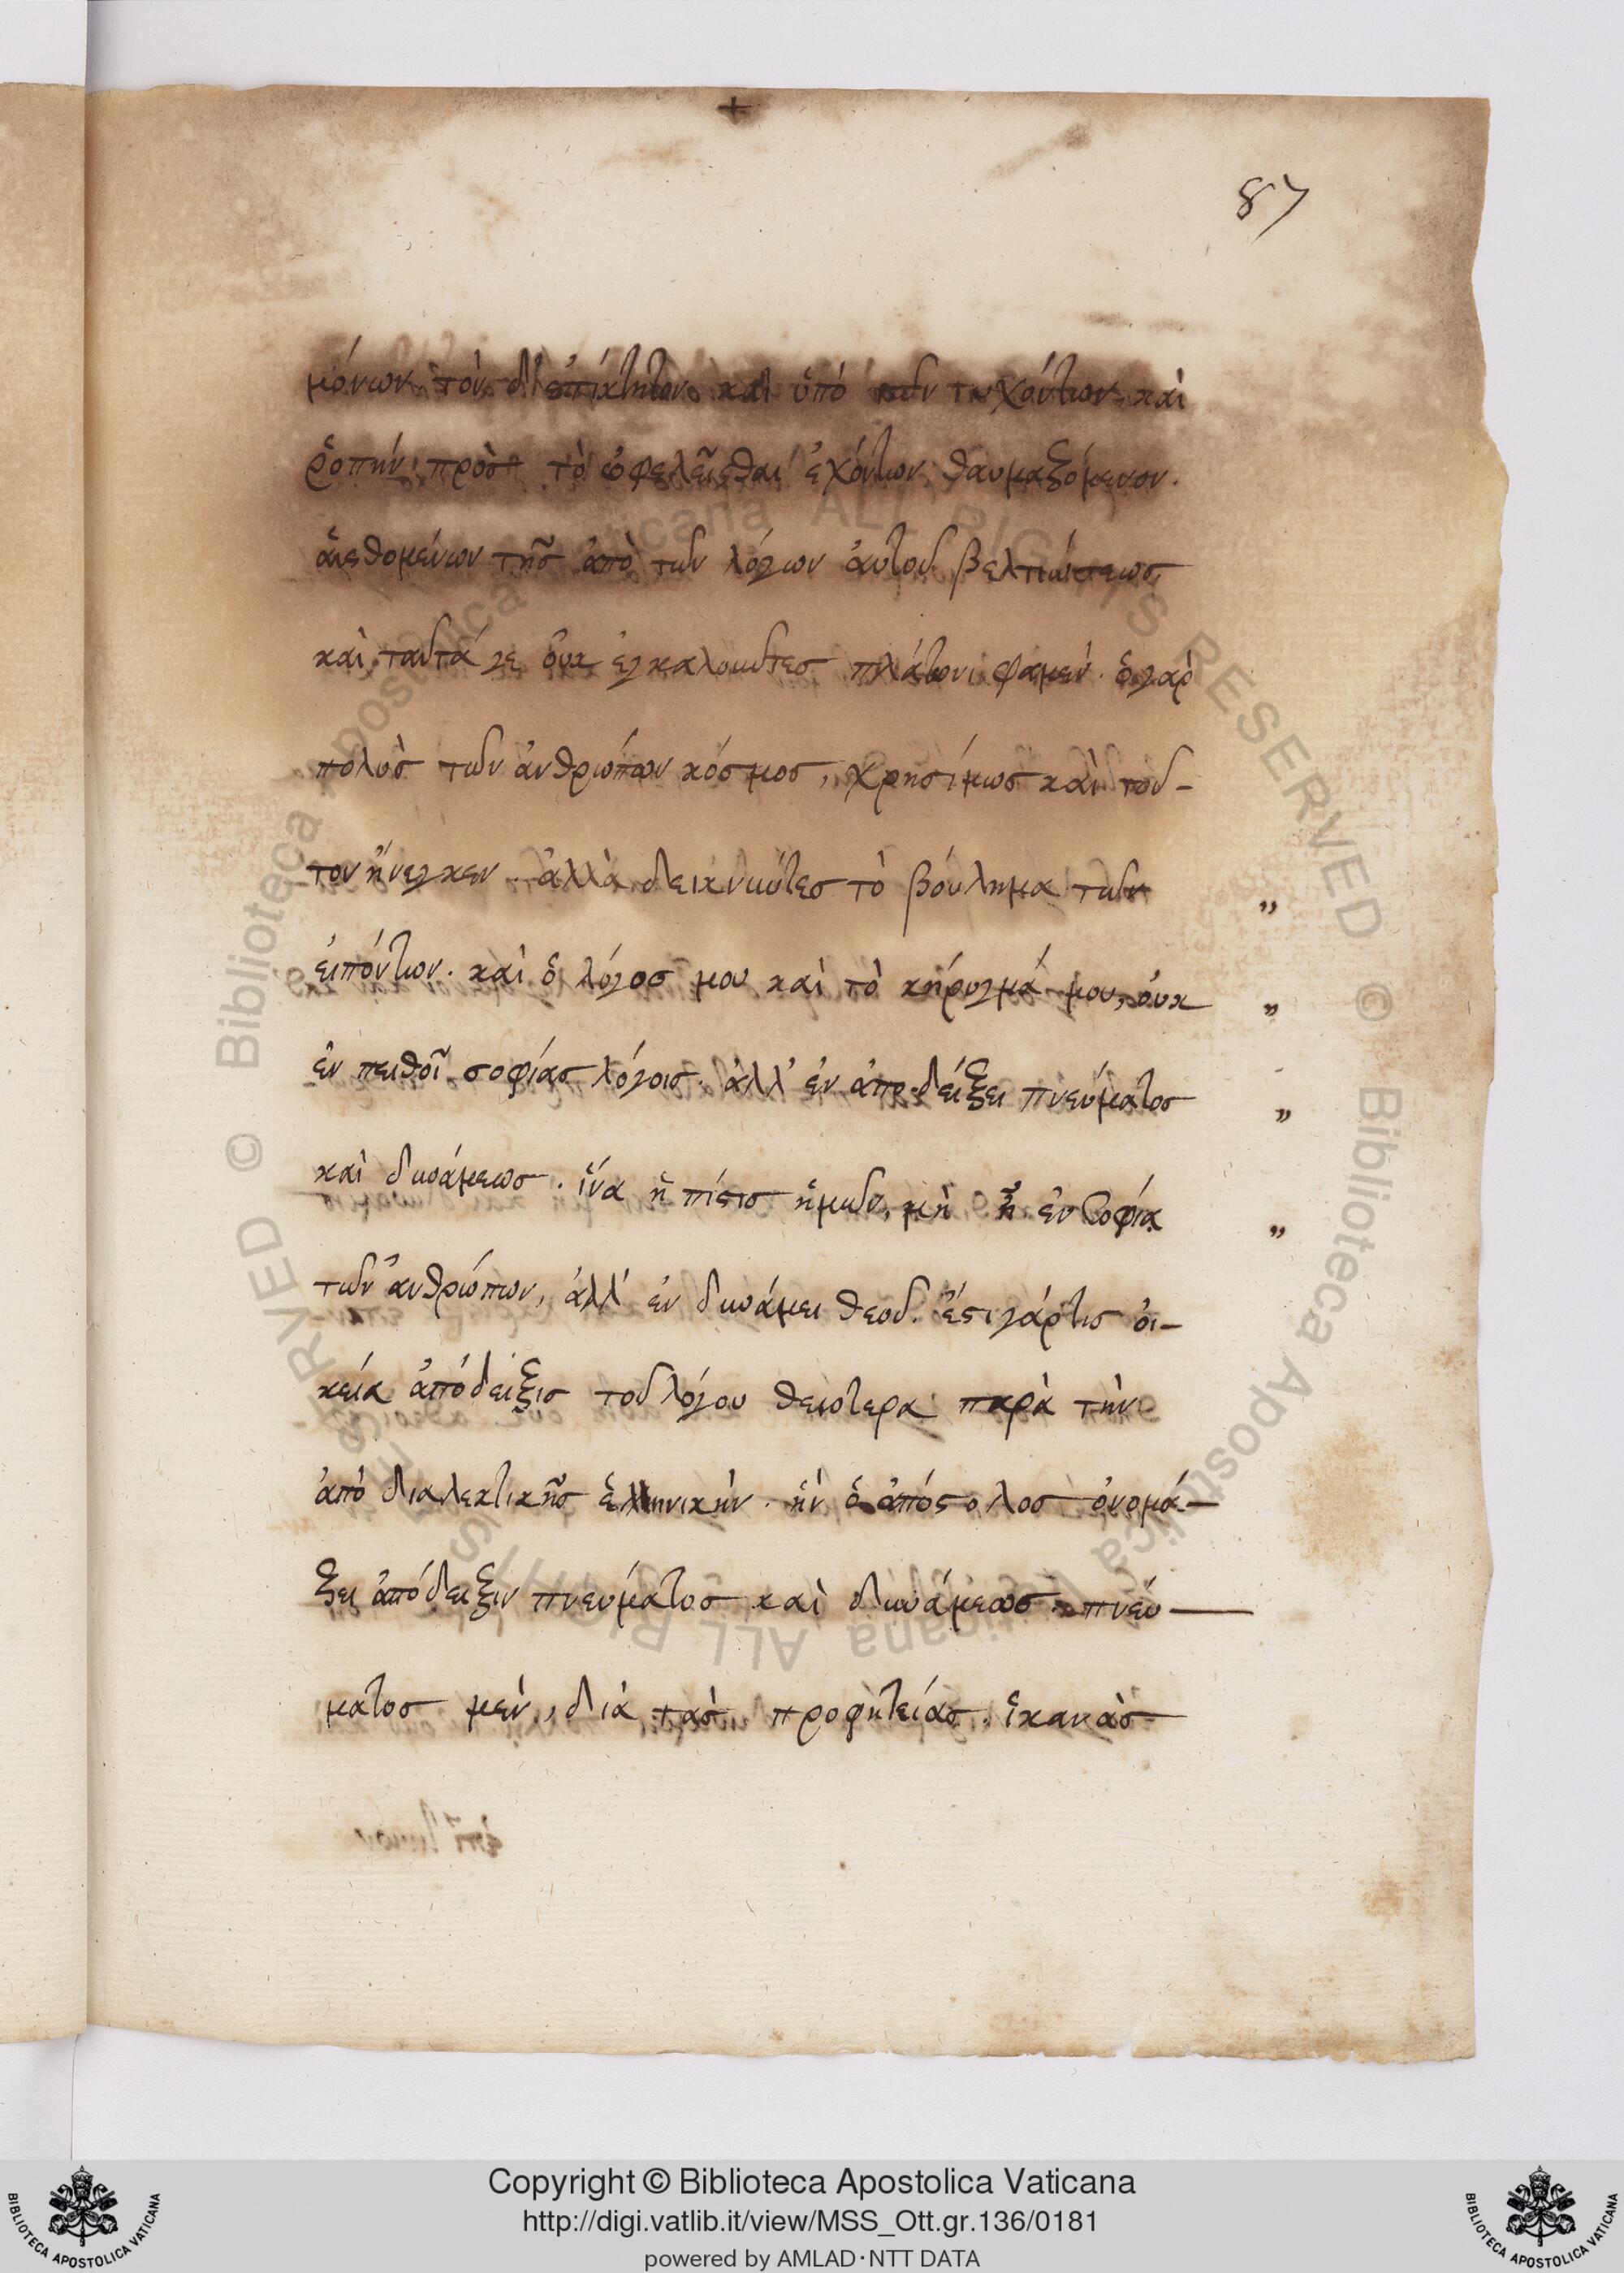 +
87
μόνων· τὸν δὲ ἐπίκτητον καὶ ὑπὸ τῶν τυχόντων καὶ
ῥοπὴν πρὸσ τὸ ὠφελεῖσθαι ἐχόντων θαυμαζόμενον·
αἰσθομένων τῆσ ἀπὸ τῶν λόγων αὐτοῦ βελτιώσεωσ
καὶ ταῦτά γε οὐκ ἐγκαλοῦντεσ πλάτωνι φαμέν· ὁ γὰρ
πολὺσ τῶν ἀνθρώπων κόσμοσ, χρησίμωσ καὶ τοῦ-
τον ἤνεγκεν· ἀλλὰ δεικνύντεσ τὸ βούλημα τῶν „
εἰπόντων· καὶ ὁ λόγοσ μου καὶ τὸ κήρυγμά μου, οὐκ „
ἐν πειθοῖ σοφίασ λόγοισ· ἀλλ' ἐν ἀποδείξει πνεύματοσ „
καὶ δυνάμεωσ· ἵνα ἡ πίστισ ἡμῶν, μὴ ᾖ ἐν σοφίᾳ „
τῶν ἀνθρώπων, ἀλλ' ἐν δυνάμει θεοῦ· ἔστι γάρ τισ οἰ-
κεία ἀπόδειξισ τοῦ λόγου θειοτερα παρὰ τὴν
ἀπὸ διαλεκτικῆσ ἑλληνικήν· ἣν ὁ ἀπόστολοσ ὀνομά-
ζει ἀπόδειξιν πνεύματοσ καὶ δυνάμεωσ· πνεύ-
ματοσ μέν, διὰ τὰσ προφητείασ· ἱκανὰσ
Copyright © Biblioteca Apostolica Vaticana
http://digi.vatlib.it/view/MSS_Ott.gr.136/0181
powered by AMLAD·NTT DATA
BIBLIOTECA APOSTOLICA VATICANA
BIBLIOTECA APOSTOLICA VATICANA